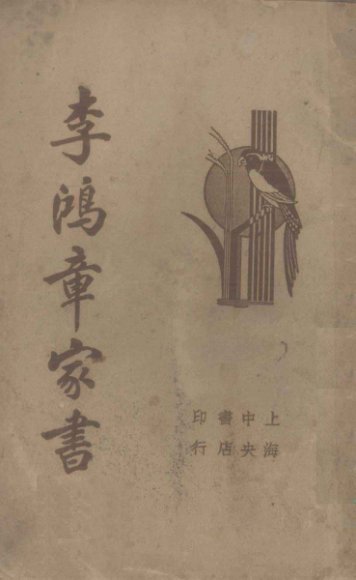 李鴻章家書
上海
中央
書店
印行